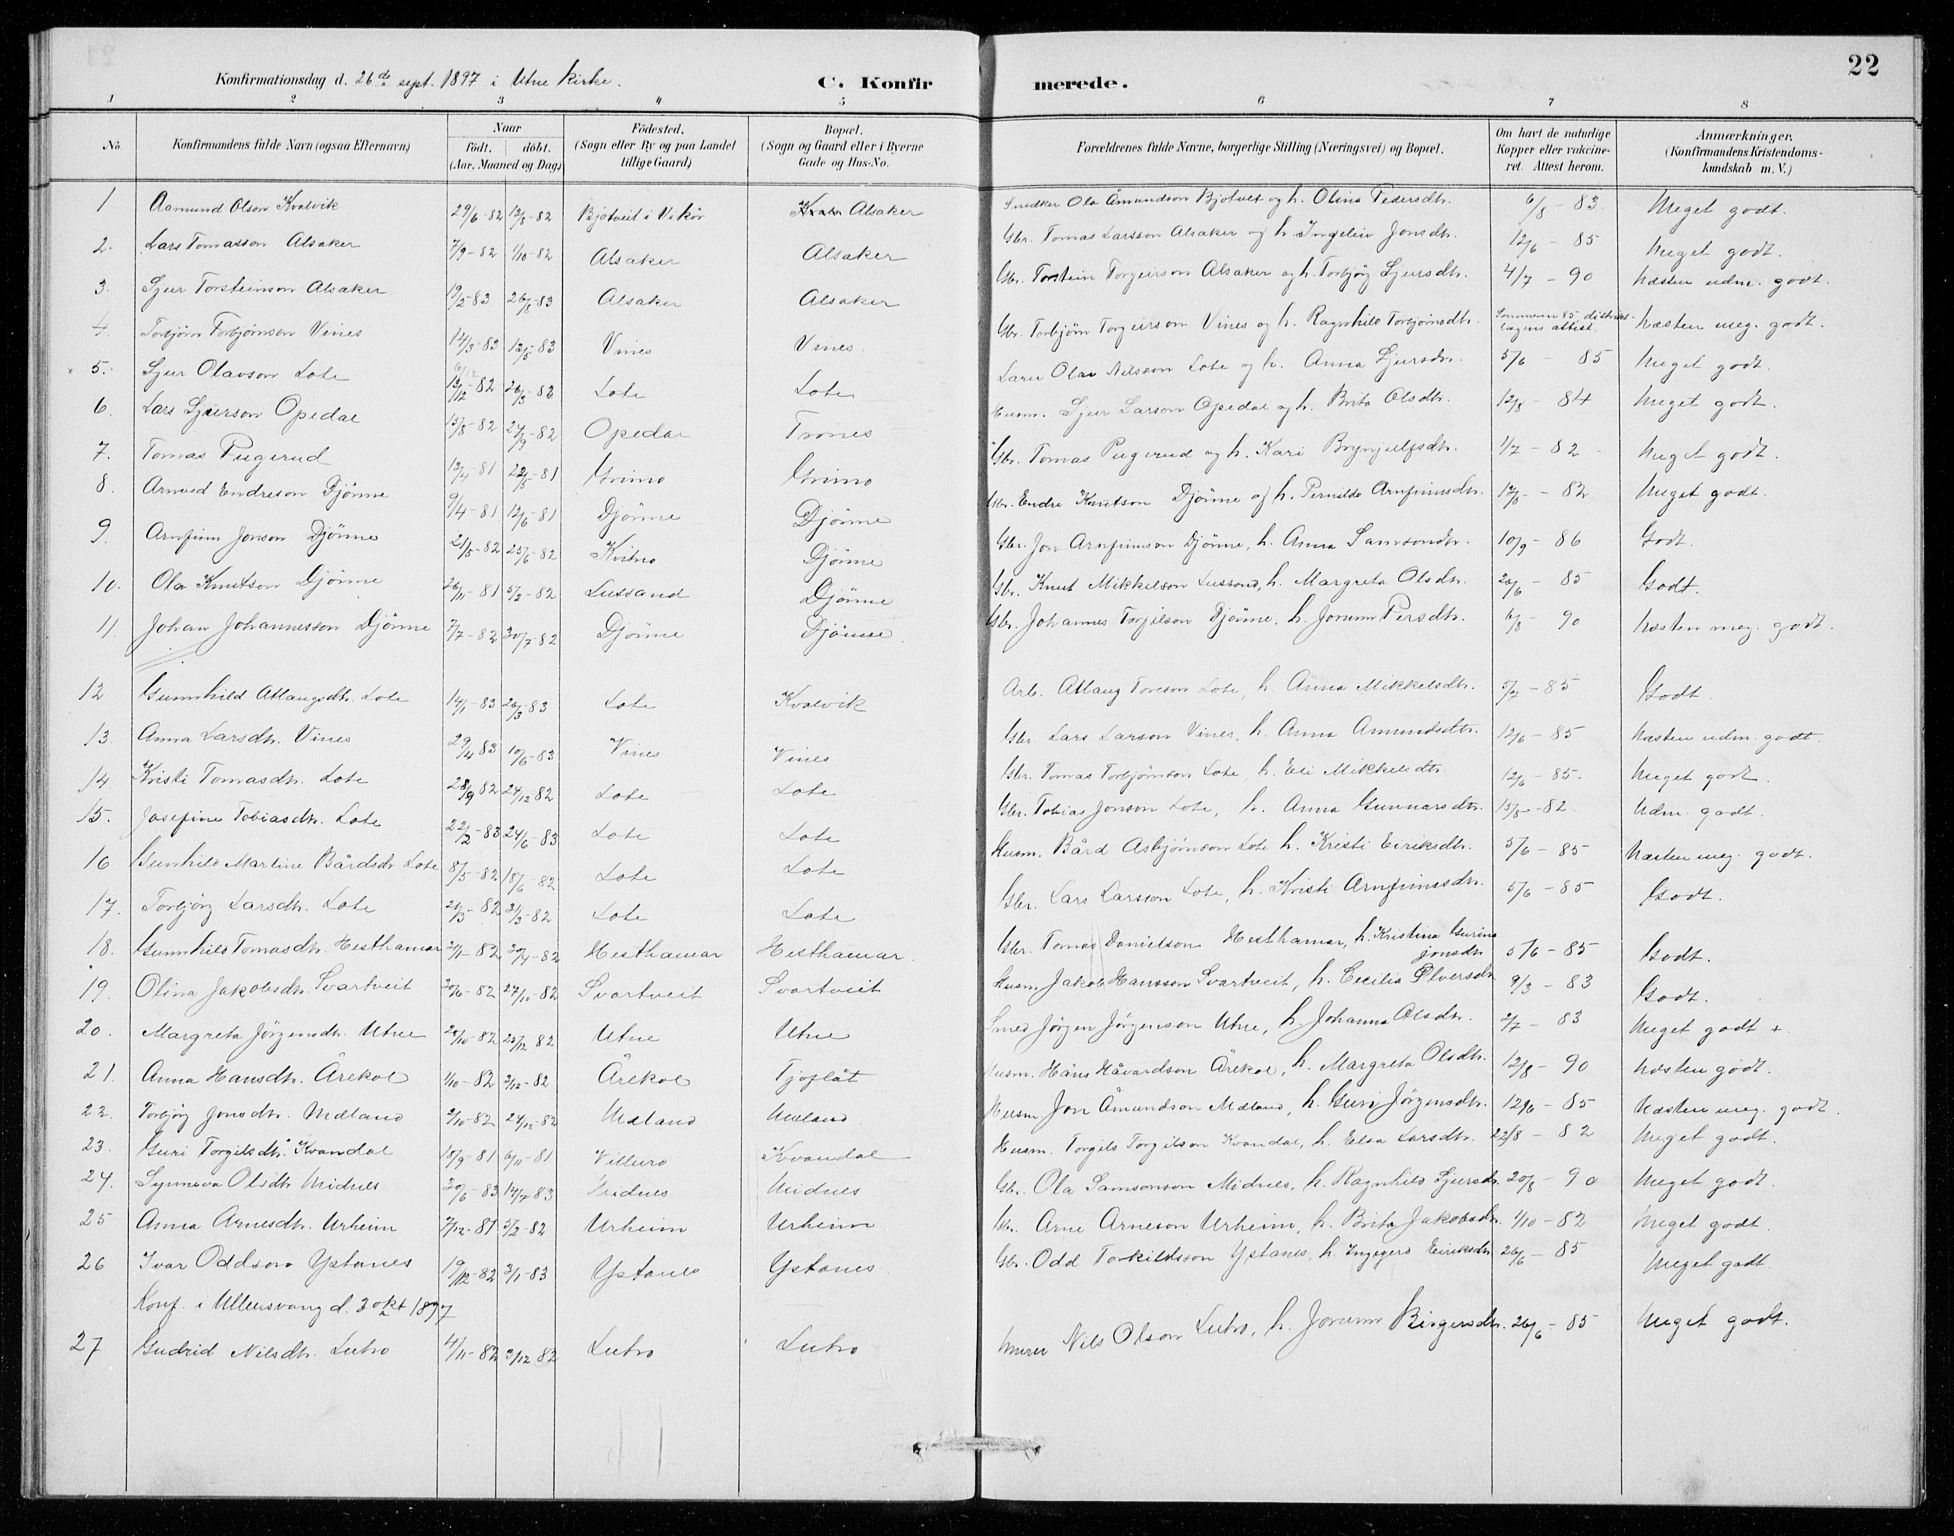 22
Konfirmationsdag d. 26de sept. 1897 i Utne kirke. C. Konfirmerede.
1 2 3 4 5 6 7 8
No. Konfirmandens fulde Navn (ogsaa Efternavn) Naar født. døbt. (Aar, Maaned og Dag) Fødested. (Sogn eller By og paa Landet tillige Gaard) Bopæl. (Sogn og Gaard eller i Byerne Gade og Hus-No. Forældrenes fulde Navne, borgerlige Stilling (Næringsvei) og Bopæl. Om havt de naturlige Kopper eller vakcineret. Attest herom. Anmærkninger. (Konfirmandens Kristendomskundskab m. V.)
1 Aamund Olson Kvalvik 29/6-82 13/8-82 Bjotveit i Vikør Alsaker Snedker Ola Åmundson Bjotveit og h. Olina Pedersdtr. 6/8 - 83. Meget godt.
2. Lars Tomasson Alsaker 7/9-82 1/10-82 Alsaker Alsaker Gbr. Tomas Larsson Alsaker og h. Ingeleiv Jonsdtr. 12/6 - 85 Meget godt.
3. Sjur Torsteinson Alsaker 19/5 83 26/8-83 Alsaker Alsaker Gbr. Torstein Torgeirson Alsaker og h. Torbjøg Sjursdtr. 4/7 - 90 Næsten udm. godt.
4 Torbjørn Torbjørnson Vines 14/3-83 13/5-83 Vines Vines Gbr. Torbjørn Torgeirson Vines og h. Ragnhild Torbjørnsdtr. Sommeren 85 distrikslægens attest. Næsten meg. godt.
5. Sjur Olavson Lote 13/12-82 26/3-83 Lote Lote Lærer Olav Nilsson Lote og h. Anna Sjursdtr. 5/6 - 85 Meget godt.
6. Lars Sjurson Opedal 13/8-82 24/9-82 Opedal Trones Husm. Sjur Larson Opedal og h. Brita Olsdtr. 12/8 - 84 Meget godt.
7. Tomas Pugerud 12/4-81 22/5-81 Grimo Grimo Gbr. Tomas Pugerud og h. Kari Brynjulfsdtr. 1/7 - 82 Meget godt.
8. Arnved Endreson Djønne 9/4-81 12/6-81 Djønne Djønne Gbr. Endre Knutson Djønne og h. Pernilde Arnfinnsdtr. - 82 Meget godt.
9. Arnfinn Jonson Djønne 21/5-82 25/6-82 Kvitno Djønne Gbr. Jon Arnfinnson Djønne, h. Anna Samsondtr. 10/9 - 86 Godt.
10. Ola Knutson Djønne 26/11-81 5/2-82 Lussand Djønne Gbr. Knut Mikkelson Lussand, h. Margreta Olsdtr. 26/6 - 85 Godt.
11. Johan Johannesson Djønne 7/7-82 30/7-82 Djønne Djønne Gbr. Johannes Torgilson Djønne, h. Jorunn Persdtr. 6/8 90 Næsten meg. godt.
12 Gunnhild Atlaugsdtr. Lote 14/1-83 26/3-83 Lote Kvalvik Arb. Atlaug Toreson Lote, h. Anna Mikkelsdtr. 5/7 - 85 Godt.
13. Anna Larsdtr. Vines 29/4 83 10/6-83 Vines Vines Gbr. Lars Larson Vines, h. Anna Amundsdtr. 12/6 - 85 Næsten udm. godt.
14. Kristi Tomasdtr. Lote 28/9 82 24/12 82 Lote Lote Gbr. Tomas Torbjørnson Lote, h. Eli Mikkelsdtr. 12/6 - 85. Meget godt.
15. Josefine Tobiasdtr. Lote 22/2-83 24/6-83 Lote Lote Gbr. Tobias Jonson Lote, h. Anna Gunnarsdtr. 15/8-82 Udm. godt.
16 Gunhild Martine Bårdsdr. Lote 8/5-82 18/6-82 Lote Lote Husm. Bård Asbjørnson Lote h. Kristi Eiriksdtr. 5/6 - 85 Næsten meg. godt.
17. Torbjøg Larsdtr. Lote 21/5-82 Lote Lote Gbr. Lars Larsson Lote, h. Kristi Arnfinnsdtr. 5/6 - 85 Godt.
18. Gunnhild Tomasdtr. Hesthamar 2/1-82 20/4-82 Hesthamar Hesthamar. Gbr. Tomas Danielson Hesthamar, h. Kristina Gurina Jonsdtr. 5/6 - 85 Godt.
19. Olina Jakobsdtr. Svartveit 20/6-82 24/10-82 Svartveit Svartveit Husm. Jakob Hansson Svartveit, h. Cecilia Ølversdtr 9/3 - 83 Godt.
20. Margreta Jørgensdtr. Utne 20/10-82 23/12 82 Utne Utne Smed Jørgen Jørgenson Utne, h. Johanna Olsdtr. 2/7 - 83 Meget godt +
21. Anna Hansdtr. Årekol 1/10-82 3/12-82 Årekol Tjoflåt Husm. Hans Håvardson Årekol, h. Margreta Olsdtr. 12/8 - 90 Næsten godt.
22. Torbjøg Jonsdtr. Mæland 2/10-82 24/12-82 Mæland Mæland Husm. Jon Åmundson Mæland, h. Guri Jørgensdtr. 12/6 - 85 Næsten meg. godt.
23. Guri Torgilsdtr. Kvandal 18/9-81 6/11-81 Villuro Kvandal Husm. Torgils Torgilson Kvandal, h. Elsa Larsdtr. 22/8 - 82 Meget godt.
24. Synneva Olsdtr Midnes 20/6-83 83 Midnes Midnes Gbr. Ola Samsonson Midnes, h. Ragnhild Sjursdr. 20/8 - 90 Meget godt.
25 Anna Arnesdtr. Urheim 7/12-81 5/2-82 Urheim Urheim Gbr. Arne Arneson Urheim, h. Brita Jakobsdr. 1/10-82 Meget godt.
26 Ivar Oddson Ystanes 19/12-82 3/1-83 Ystanes Ystanes Gbr. Odd Torkildsson Ystanes, h. Ingegerd Eiriksdtr 26/6 - 85 Meget godt.
Konf. i Ullensvang d. 3 okt 1897
27 Gudrid Nilsdtr. Lutro 4/11-82 3/12 82 Lutro Lutro Murer Nils Olson Lutro, h. Jorunn Birgersdtr. 26/6 - 85 Meget godt.